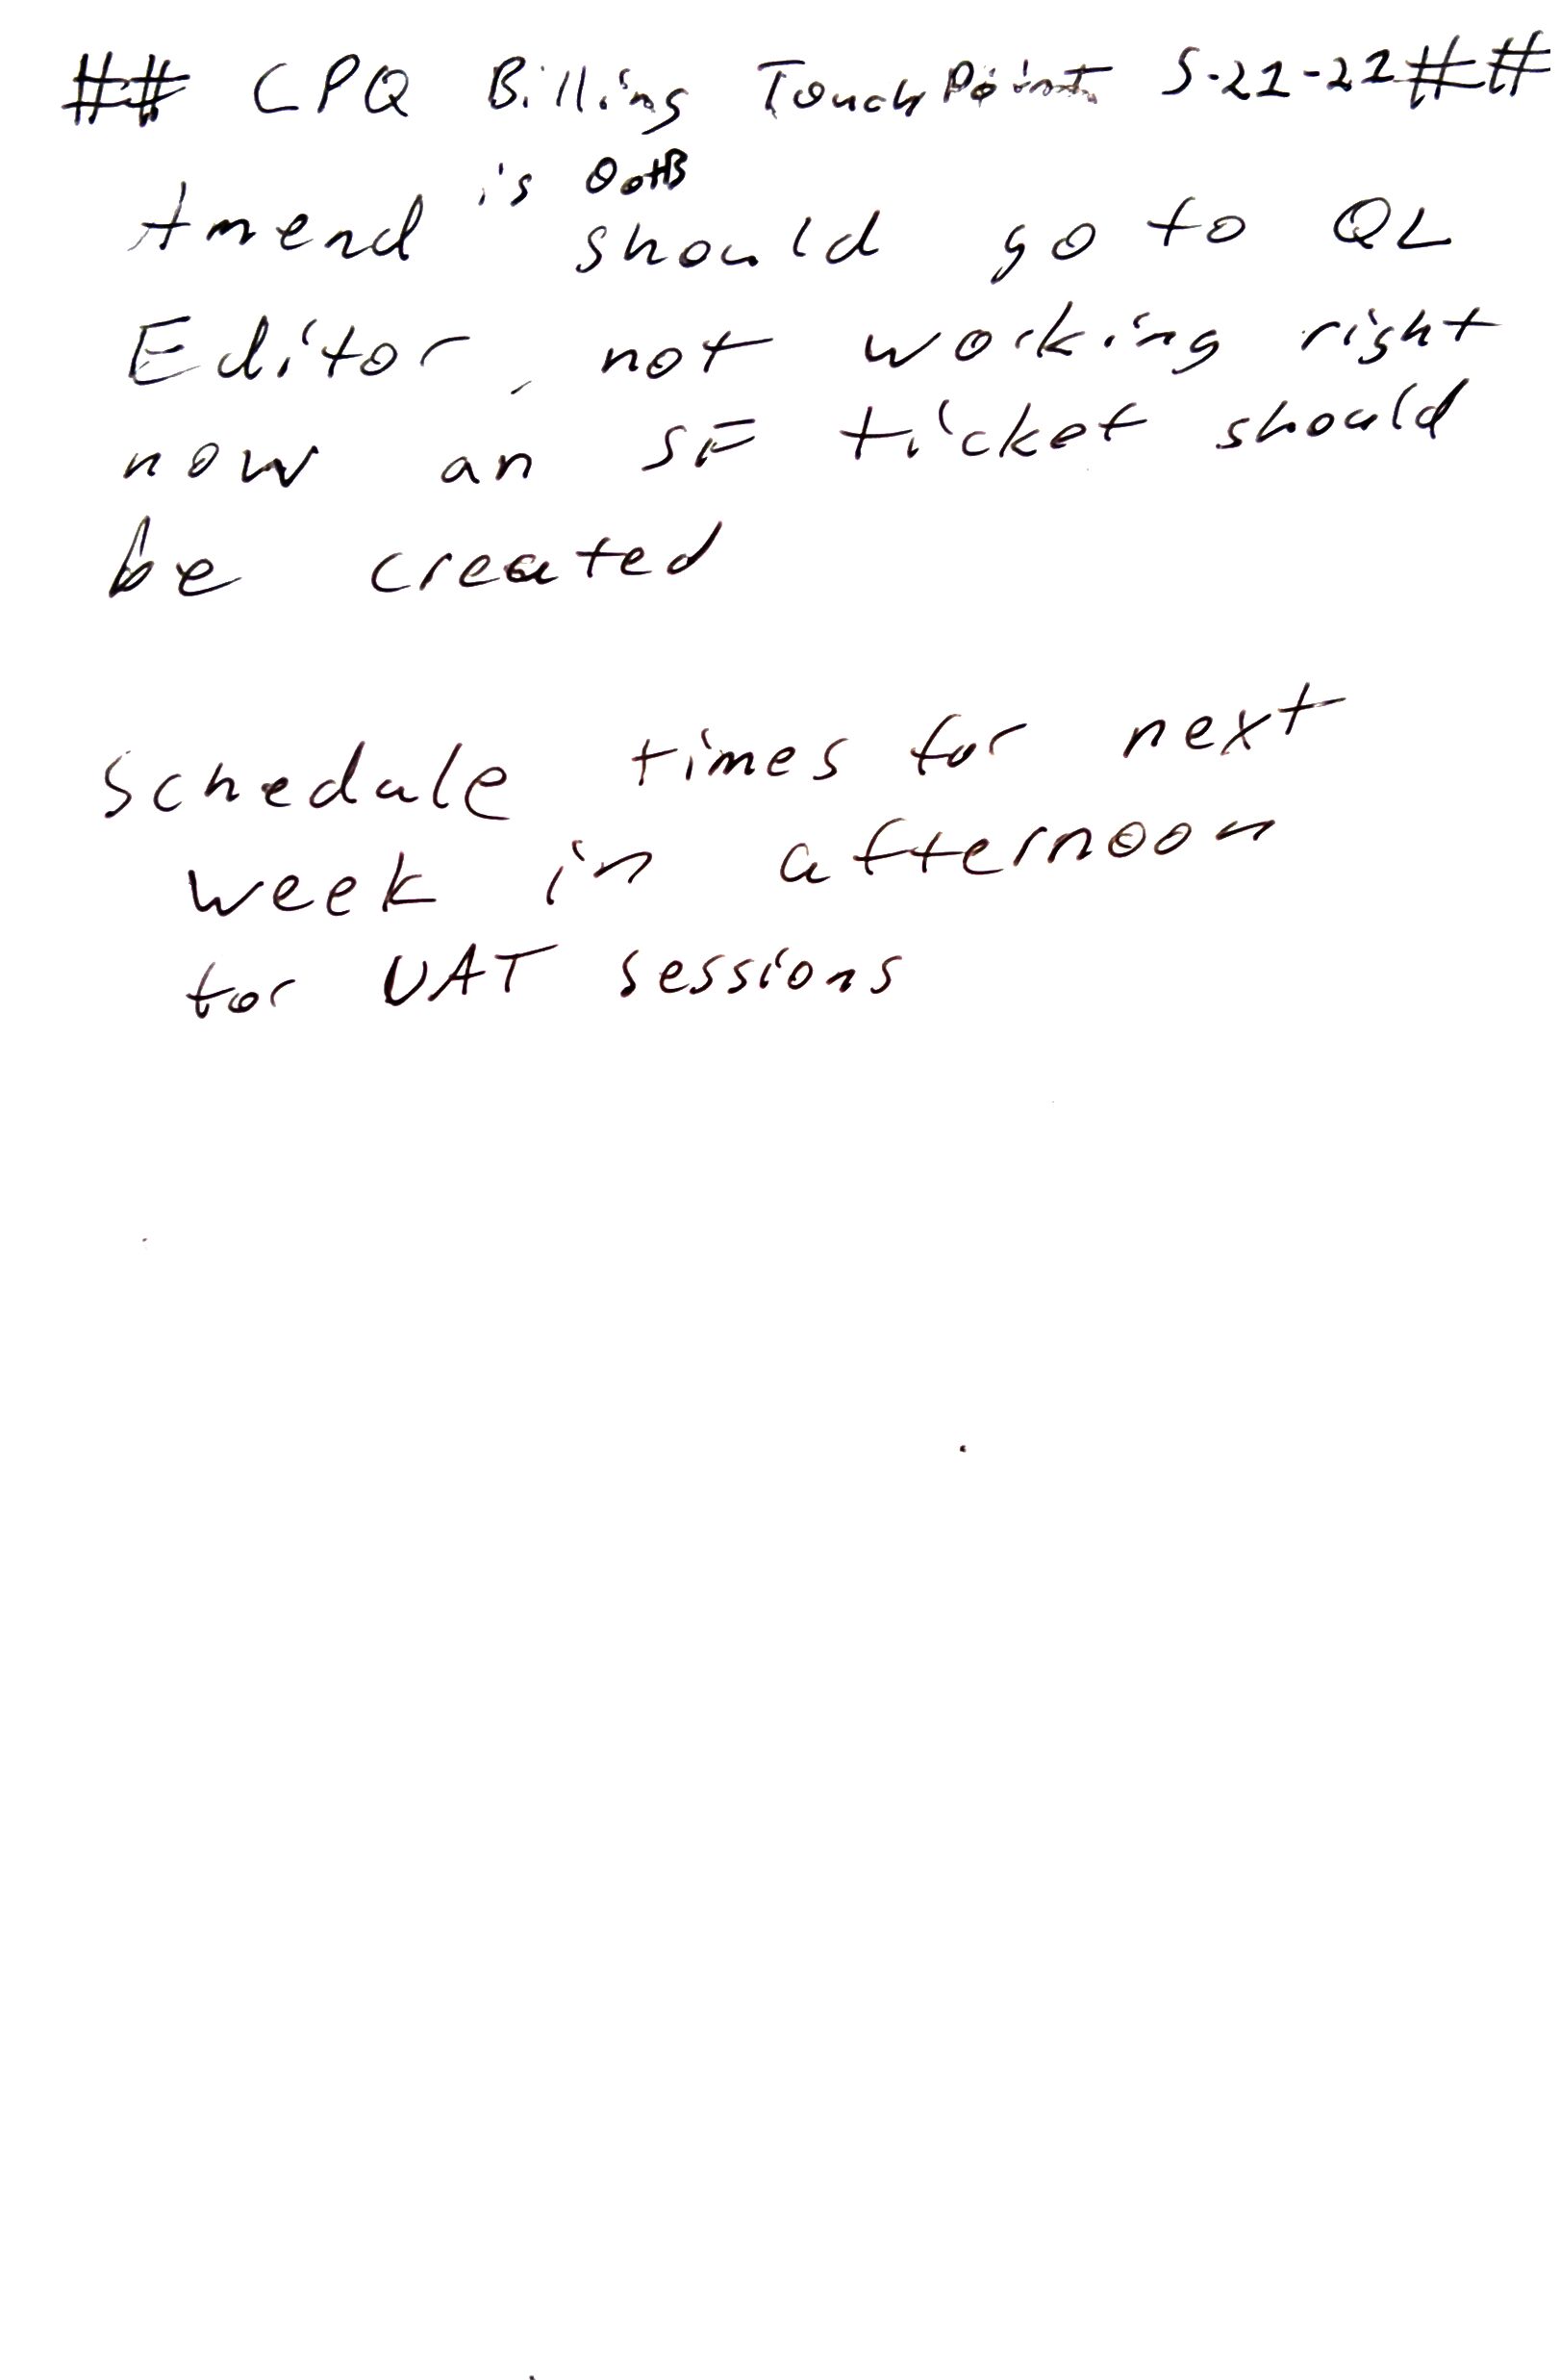 ## CPQ Billing TouchPoint 5-21-22##
is OotB
Amend should go to QL
Editor, not working right
now an SF ticket should
be created
Schedule times for next
week in afternoon
for UAT sessions